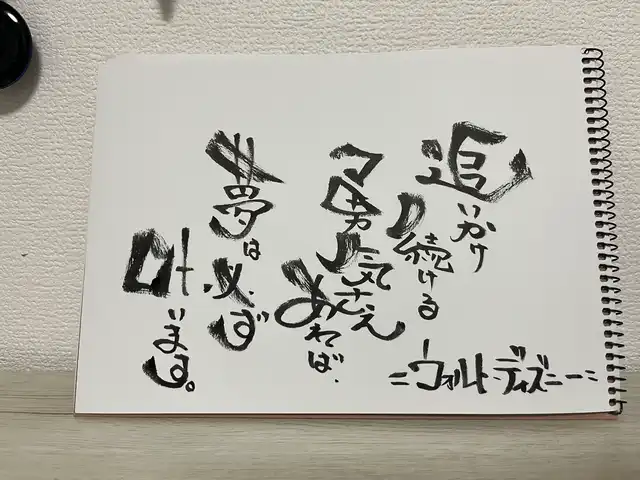 追いかけ
続ける
勇気さえ
あれば、
夢は必ず
叶います。
=ウォルト・ディズニー=